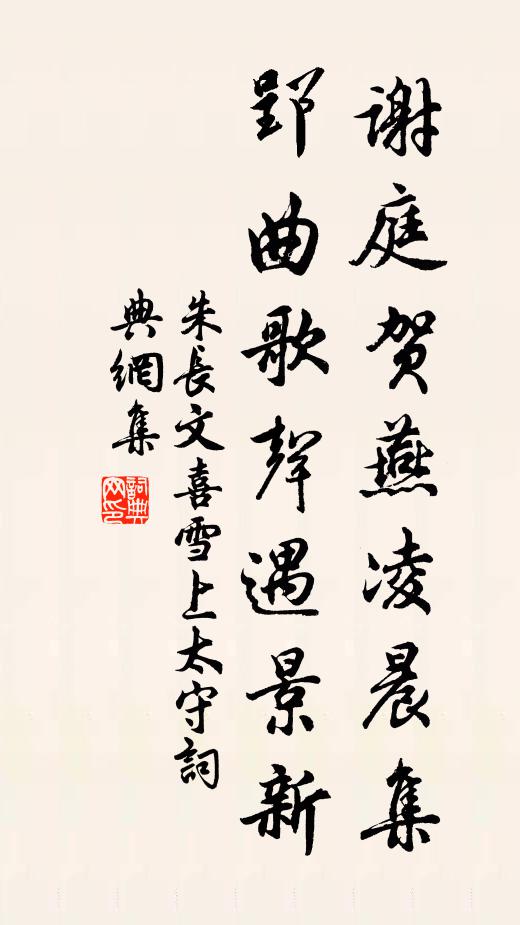 谢庭贺燕凌晨集
郢曲歌聲遇景新
朱長文喜雪上太守詞
典網集
詞典
网印